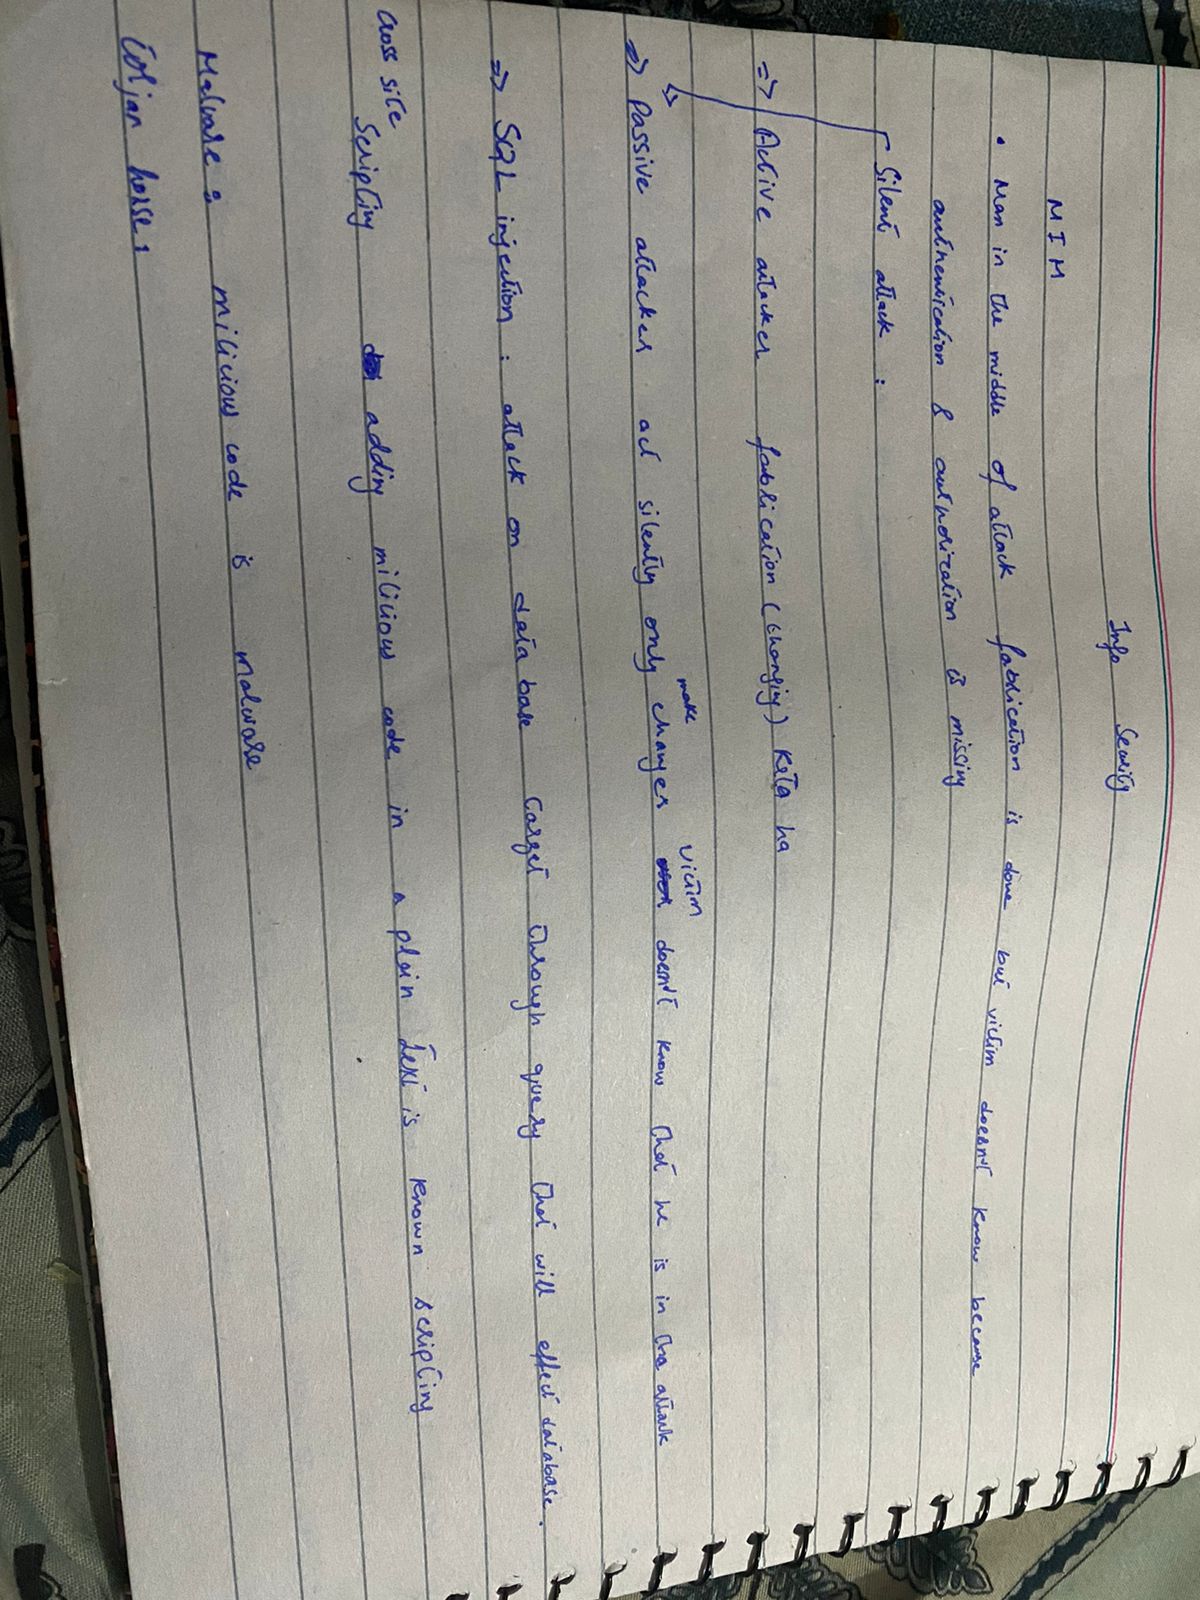 Info Security
MIM
• Man in the middle of attack fabrication is done but victim doesn't know because
authentication & authorization is missing
Silent attack :
=> Active attacker fabrication (changing) Krta ha
make victim
=> Passive attacker act silently only changes doesn't know that he is in the attack
=> SQL injection : attack on data base target through query that will effect database.
Cross site
Scripting adding milicious code in a plain text is known scripting
Malware : milicious code is malware
Torjan horse :